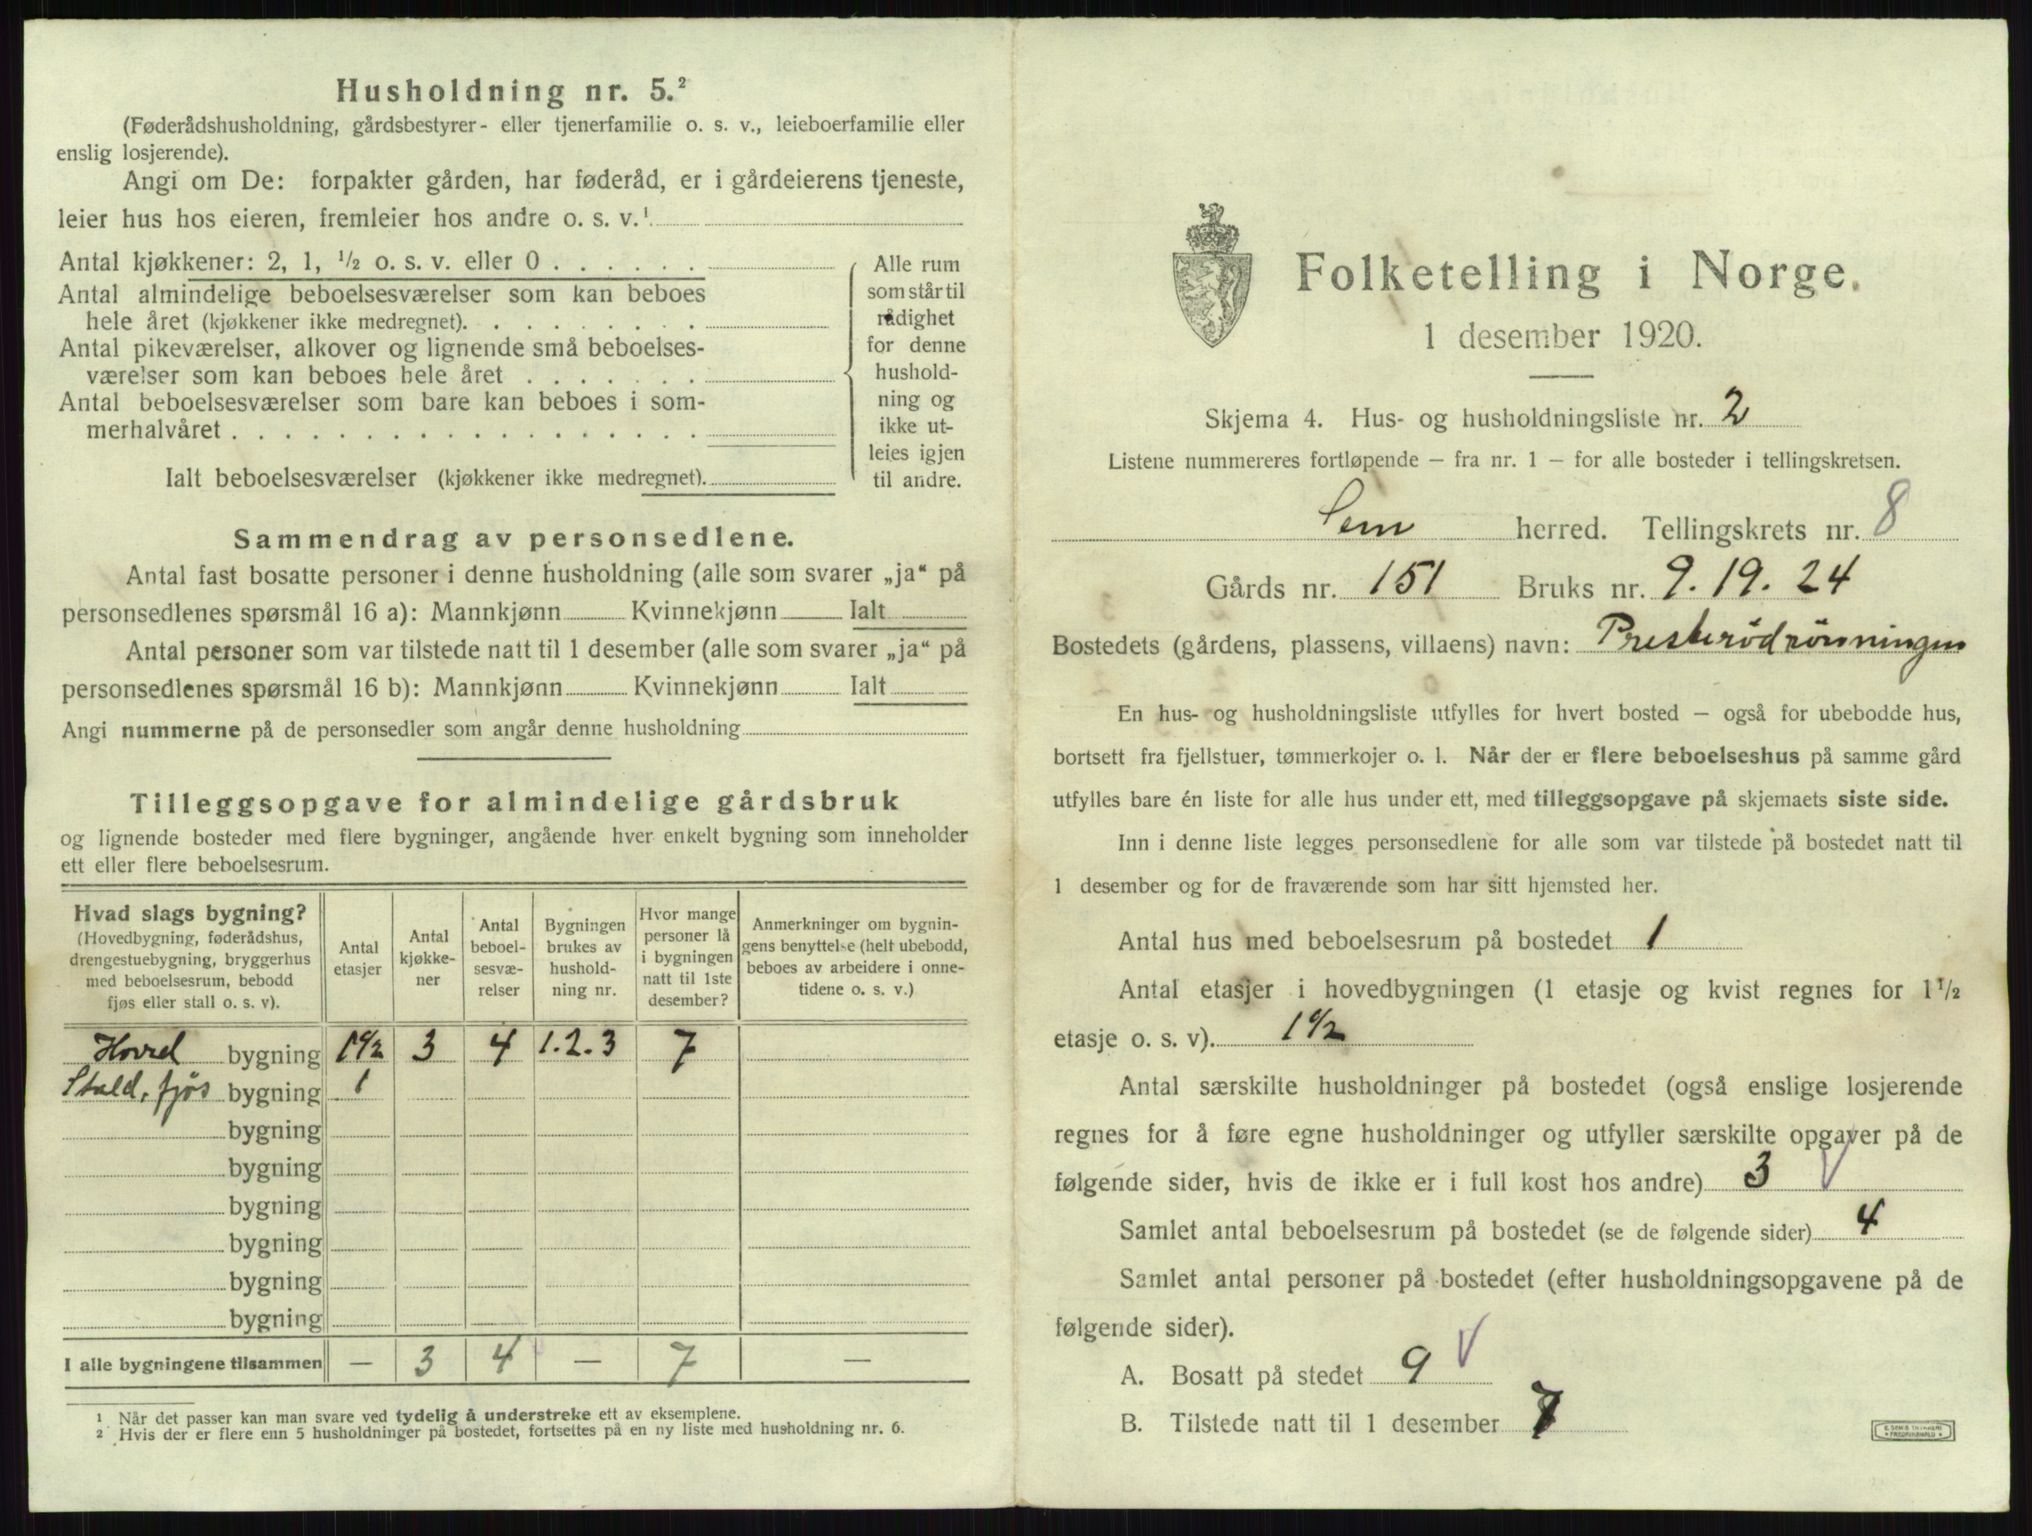 Husholdning nr. 5.²
(Føderådshusholdning, gårdsbestyrer- eller tjenerfamilie o. s. v., leieboerfamilie eller
enslig losjerende).
Angi om De: forpakter gården, har føderåd, er i gårdeierens tjeneste,
leier hus hos eieren, fremleier hos andre o. s. v.¹
Antal kjøkkener: 2, 1, ½ o. s. v. eller 0
Antal almindelige beboelsesværelser som kan beboes
hele året (kjøkkener ikke medregnet).
Antal pikeværelser, alkover og lignende små beboelses-
værelser som kan beboes hele året
Antal beboelsesværelser som bare kan beboes i som-
merhalvåret
Ialt beboelsesværelser (kjøkkener ikke medregnet).
Alle rum
som står til
rådighet
for denne
hushold-
ning og
ikke ut-
leies igjen
til andre.
Sammendrag av personsedlene.
Antal fast bosatte personer i denne husholdning (alle som svarer „ja“ på
personsedlenes spørsmål 16 a): Mannkjønn Kvinnekjønn Ialt
Antal personer som var tilstede natt til 1 desember (alle som svarer „ja“ på
personsedlenes spørsmål 16 b): Mannkjønn Kvinnekjønn Ialt
Angi nummerne på de personsedler som angår denne husholdning
Tilleggsopgave for almindelige gårdsbruk
og lignende bosteder med flere bygninger, angående hver enkelt bygning som inneholder
ett eller flere beboelsesrum.
Hvad slags bygning?
(Hovedbygning, føderådshus,
drengestuebygning, bryggerhus
med beboelsesrum, bebodd
fjøs eller stall o. s. v).
Antal
etasjer
Antal
kjøkke-
ner
Antal
beboel-
sesvæ-
relser
Bygningen
brukes av
hushold-
ning nr.
Hvor mange
personer lå
i bygningen
natt til 1ste
desember?
Anmerkninger om bygnin-
gens benyttelse (helt ubebodd,
beboes av arbeidere i onne-
tidene o. s. v.)
Hoved bygning 1½ 3 4 1.2.3 7
Stald, fjøs bygning 1
bygning
bygning
bygning
bygning
bygning
bygning
I alle bygningene tilsammen — 3 4 — 7 —
¹ Når det passer kan man svare ved tydelig å understreke ett av eksemplene.
² Hvis der er flere enn 5 husholdninger på bostedet, fortsettes på en ny liste med husholdning nr. 6.
Folketelling i Norge.
1 desember 1920.
Skjema 4. Hus- og husholdningsliste nr. 2
Listene nummereres fortløpende — fra nr. 1 — for alle bosteder i tellingskretsen.
Sem herred. Tellingskrets nr. 8
Gårds nr. 151 Bruks nr. 9.19.24
Bostedets (gårdens, plassens, villaens) navn: Presterødrønningen
En hus- og husholdningsliste utfylles for hvert bosted — også for ubebodde hus,
bortsett fra fjellstuer, tømmerkojer o. l. Når der er flere beboelseshus på samme gård
utfylles bare én liste for alle hus under ett, med tilleggsopgave på skjemaets siste side.
Inn i denne liste legges personsedlene for alle som var tilstede på bostedet natt til
1 desember og for de fraværende som har sitt hjemsted her.
Antal hus med beboelsesrum på bostedet 1
Antal etasjer i hovedbygningen (1 etasje og kvist regnes for 1½
etasje o. s. v). 1½
Antal særskilte husholdninger på bostedet (også enslige losjerende
regnes for å føre egne husholdninger og utfyller særskilte opgaver på de
følgende sider, hvis de ikke er i full kost hos andre) 3 V
Samlet antal beboelsesrum på bostedet (se de følgende sider) 4
Samlet antal personer på bostedet (efter husholdningsopgavene på de
følgende sider).
A. Bosatt på stedet 9 V
B. Tilstede natt til 1 desember 7